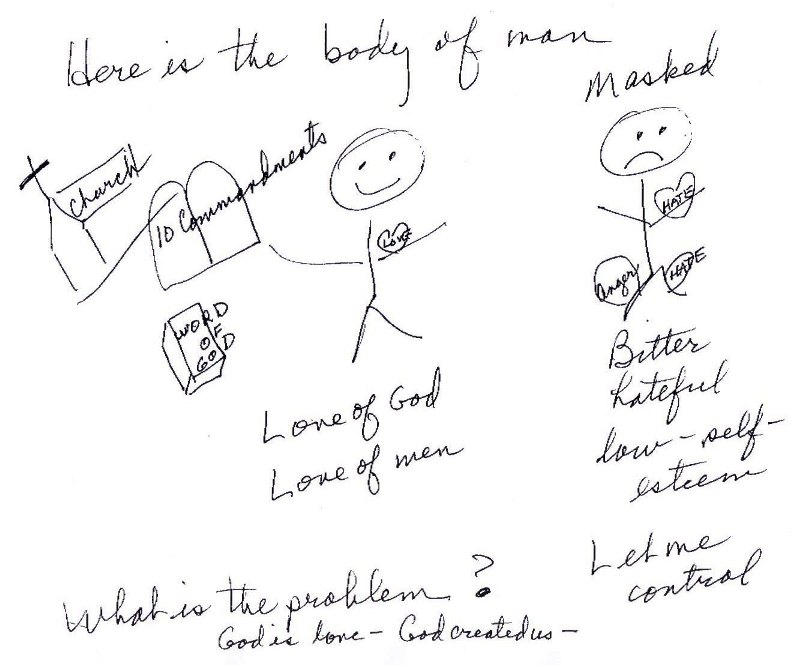 Here is the body of man
Masked
Church
10 Commandments
LOVE
HATE
anger
HATE
WORD
OF
GOD
Love of God
Love of men
Bitter
hateful
low-self-
esteem
Let me
control
What is the problem?
God is love - God created us -